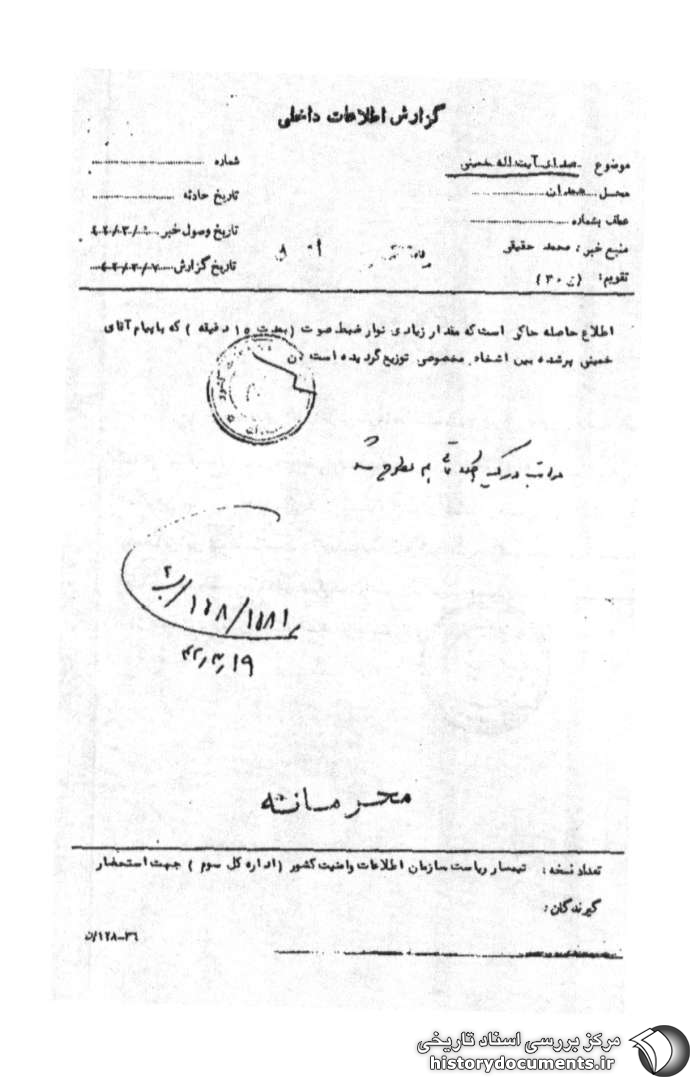 گزارش اطلاعات داخلی
موضوع صدای آیت اله خمینی
شماره
محل همدان
تاریخ حادثه
عطف بشماره
تاریخ وصول خبر
منبع خبر: محمد حقیقی
تاریخ گزارش ۴۲/۳/۷
تقویم:
اطلاع حاصله حاکی است که مقدار زیادی نوار ضبط صوت (بمدت ۱۵ دقیقه) که با پیام آقای
خمینی پر شده بین اشخاص مخصوصی توزیع گردیده است
مطرح شد
۴۲٫۳٫۱۹
محرمانه
تعداد نسخه: تیمسار ریاست سازمان اطلاعات و امنیت کشور (اداره کل سوم) جهت استحضار
گیرندگان:
۱۲۸-۳۶/ن
مرکز بررسی اسناد تاریخی
historydocuments.ir